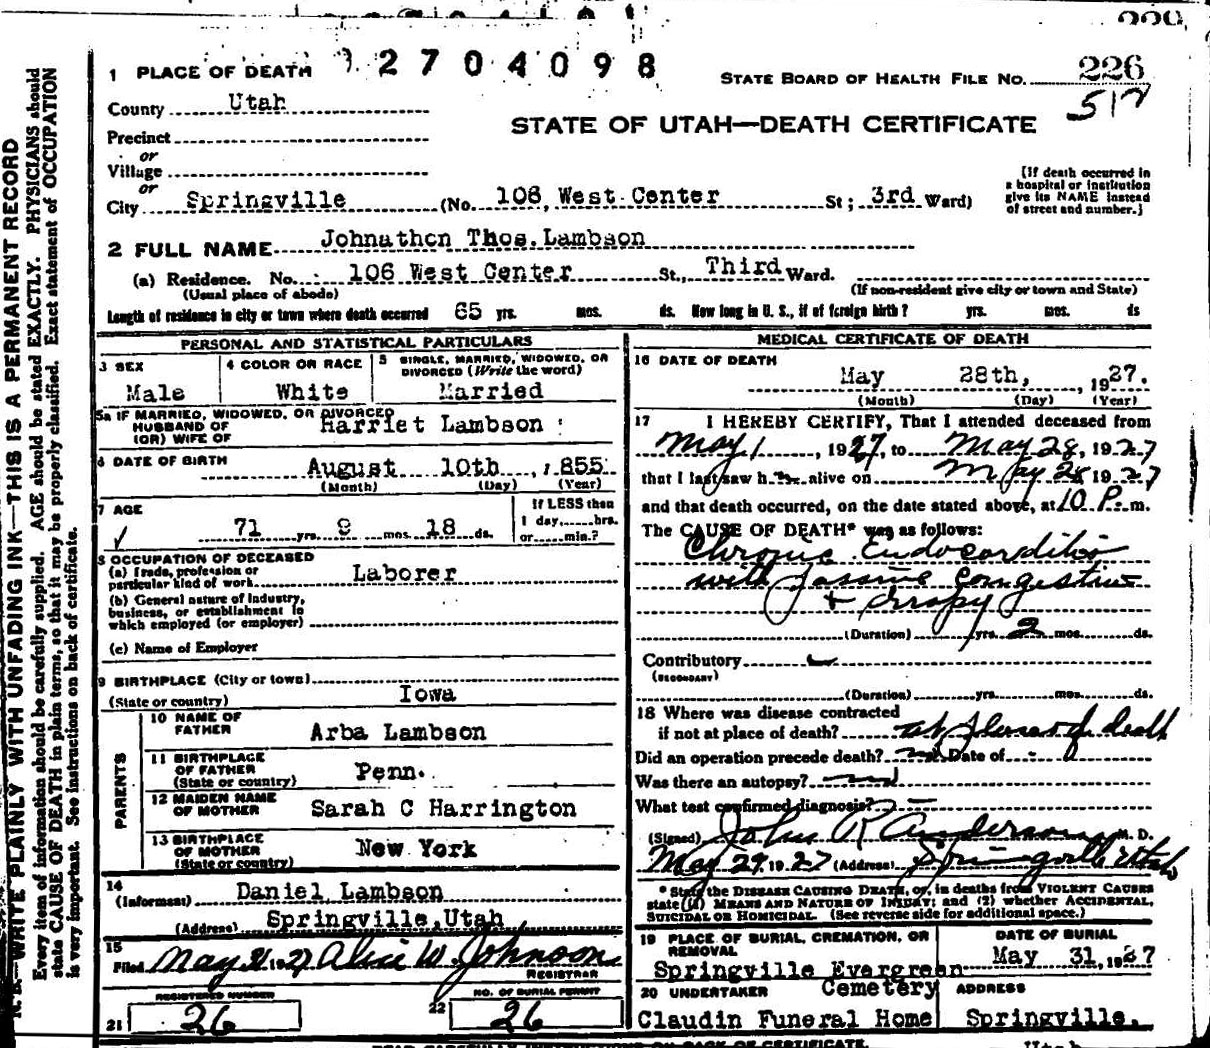 2704098
1 PLACE OF DEATH
STATE BOARD OF HEALTH FILE NO. 226
County Utah
512
STATE OF UTAH—DEATH CERTIFICATE
Precinct
or
Village
or
City Springville (No. 106, West Center St; 3rd Ward)
[If death occurred in
a hospital or institution
give its NAME instead
of street and number.]
2 FULL NAME Johnathon Thos. Lambson
(a) Residence. No. 106 West Center St., Third Ward.
(Usual place of abode)
(If non-resident give city or town and State)
Length of residence in city or town where death occurred 65 yrs. mos. ds. How long in U. S., if of foreign birth? yrs. mos. ds
PERSONAL AND STATISTICAL PARTICULARS
3 SEX
Male
4 COLOR OR RACE
White
5 SINGLE, MARRIED, WIDOWED, OR
DIVORCED (Write the word)
Married
5a IF MARRIED, WIDOWED, OR DIVORCED
HUSBAND OF
(OR) WIFE OF
Harriet Lambson
6 DATE OF BIRTH
August 10th, 1855
(Month) (Day) (Year)
7 AGE
71 yrs 9 mos 18 ds.
If LESS than
1 day,......hrs.
or......min.?
8 OCCUPATION OF DECEASED
(a) Trade, profession or
particular kind of work Laborer
(b) General nature of Industry,
business, or establishment in
which employed (or employer)
(c) Name of Employer
9 BIRTHPLACE (City or town)
(State or country) Iowa
PARENTS
10 NAME OF
FATHER
Arba Lambson
11 BIRTHPLACE
OF FATHER
(State or country)
Penn.
12 MAIDEN NAME
OF MOTHER
Sarah C Harrington
13 BIRTHPLACE
OF MOTHER
(State or country)
New York
14
(Informant) Daniel Lambson
(Address) Springville, Utah
15
Filed May 31 1927 Alice W. Johnson
REGISTRAR
REGISTERED NUMBER
21 26
NO. OF BURIAL PERMIT
22 26
MEDICAL CERTIFICATE OF DEATH
16 DATE OF DEATH
May 28th, 1927.
(Month) (Day) (Year)
17 I HEREBY CERTIFY, That I attended deceased from
May 1, 1927, to May 28, 1927
that I last saw h im alive on May 28 1927
and that death occurred, on the date stated above, at 10 P. m.
The CAUSE OF DEATH* was as follows:
Chronic Endocarditis
with Passive Congestion
+ Dropsy
(Duration) yrs. 2 mos. ds.
Contributory
(SECONDARY)
(Duration) yrs. mos. ds.
18 Where was disease contracted
if not at place of death? at place of death
Did an operation precede death? no Date of
Was there an autopsy? no
What test confirmed diagnosis?
(Signed) John R Anderson, M. D.
May 29, 1927 (Address) Springville Utah
* State the DISEASE CAUSING DEATH, or, in deaths from VIOLENT CAUSES
state (1) MEANS AND NATURE OF INJURY; and (2) whether ACCIDENTAL,
SUICIDAL OR HOMICIDAL. (See reverse side for additional space.)
19 PLACE OF BURIAL, CREMATION, OR
REMOVAL
Springville Evergreen
Cemetery
DATE OF BURIAL
May 31, 1927
20 UNDERTAKER
Claudin Funeral Home
ADDRESS
Springville.
Utah
N. B.—WRITE PLAINLY WITH UNFADING INK—THIS IS A PERMANENT RECORD
Every item of information should be carefully supplied. AGE should be stated EXACTLY. PHYSICIANS should
state CAUSE OF DEATH in plain terms, so that it may be properly classified. Exact statement of OCCUPATION
is very important. See instructions on back of certificate.